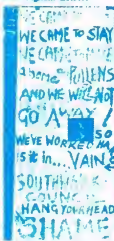 WE CAME TO STAY
a home PULLENS
AND WE WILL NOT
GO AWAY !
SO
WE'VE WORKED HA
is it in... VAIN
SOUTHWARK
COUNCIL
HANG YOUR HEAD
SHAME